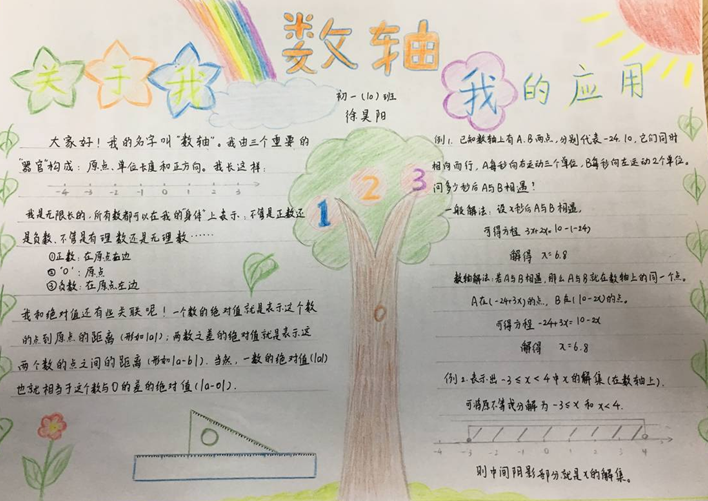 数轴
初一(10)班
徐昊阳
关于我
大家好！我的名字叫“数轴”。我由三个重要的
“器官”构成：原点、单位长度和正方向。我长这样：
-4 -3 -2 -1 0 1 2 3
我是无限长的，所有数都可以在我的“身体”上表示，不管是正数还
是负数，不管是有理数还是无理数……
①正数：在原点右边
②“0”：原点
③负数：在原点左边
我和绝对值还有些关联呢！一个数的绝对值就是表示这个数
的点到原点的距离（形如|a|），两数之差的绝对值就是表示这
两个数的点之间的距离（形如|a-b|）。当然，一数的绝对值(|a|)
也就相当于这个数与0的差的绝对值(|a-0|)。
1 2 3
0
我的应用
例1. 已知数轴上有A、B两点，分别代表-24，10，它们同时
相向而行，A每秒向右运动三个单位，B每秒向左运动2个单位。
问多少秒后A与B相遇？
一般解法：设x秒后A与B相遇。
可得方程 3x+2x=10-(-24)
解得 x=6.8
数轴解法：若A与B相遇，那么A与B就在数轴上的同一个点。
A在(-24+3x)的点，B在(10-2x)的点。
可得方程 -24+3x=10-2x
解得 x=6.8
例2. 表示出 -3≤x<4 中x的解集（在数轴上）。
可将原不等式分解为 -3≤x 和 x<4.
-4 -3 -2 -1 0 1 2 3 4
则中间阴影部分就是x的解集。